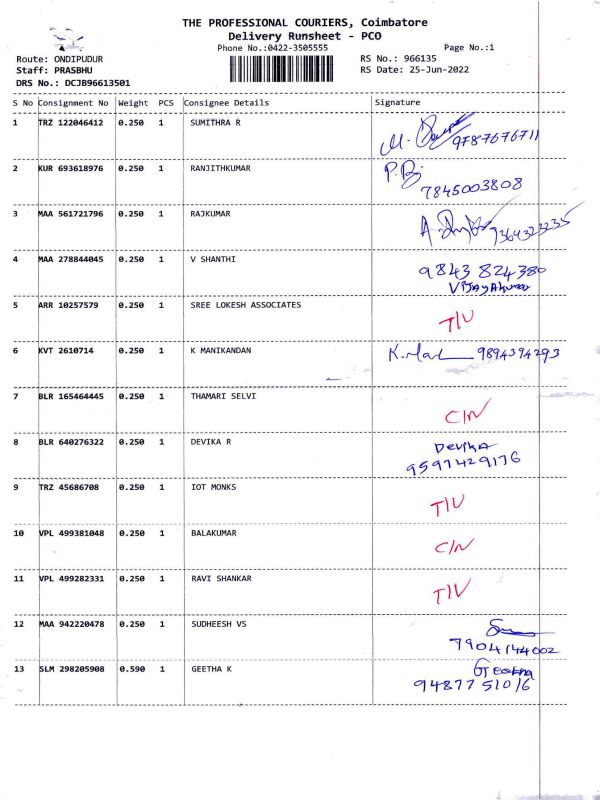 THE PROFESSIONAL COURIERS, Coimbatore
Delivery Runsheet - PCO
Phone No.:0422-3505555
Page No.:1
Route: ONDIPUDUR
RS No.: 966135
Staff: PRASBHU
RS Date: 25-Jun-2022
DRS No.: DCJB96613501
S No Consignment No Weight PCS Consignee Details Signature
1 TRZ 122046412 0.250 1 SUMITHRA R
9787676711
2 KUR 693618976 0.250 1 RANJITHKUMAR
7845003808
3 MAA 561721796 0.250 1 RAJKUMAR
4 MAA 278844045 0.250 1 V SHANTHI
9843 824380
5 ARR 10257579 0.250 1 SREE LOKESH ASSOCIATES
T/U
6 KVT 2610714 0.250 1 K MANIKANDAN 9894394293
7 BLR 165464445 0.250 1 THAMARI SELVI
C/N
8 BLR 640276322 0.250 1 DEVIKA R Devika
9597429176
9 TRZ 45686708 0.250 1 IOT MONKS
T/U
10 VPL 499381048 0.250 1 BALAKUMAR
C/N
11 VPL 499282331 0.250 1 RAVI SHANKAR
T/U
12 MAA 942220478 0.250 1 SUDHEESH VS
7904144002
13 SLM 298205908 0.590 1 GEETHA K
9487751016